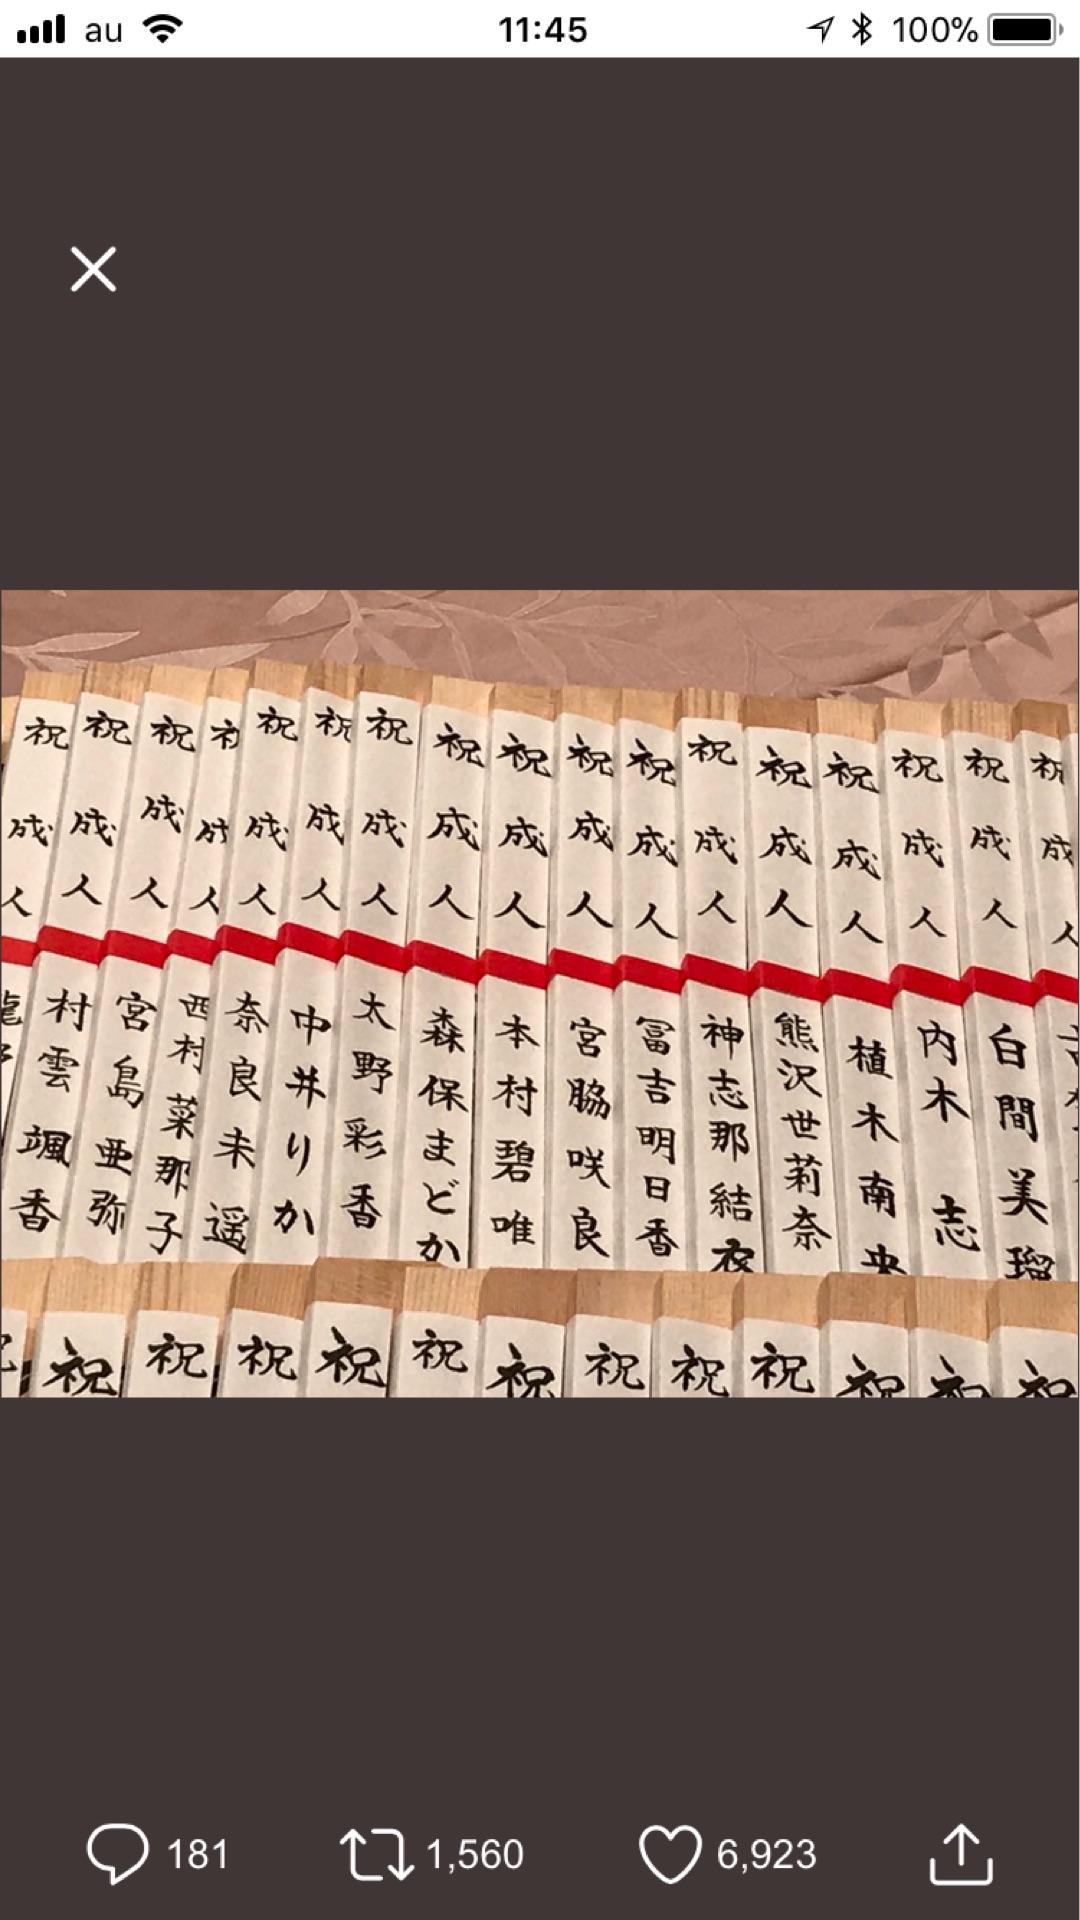 au 11:45 100%
祝成人 白間美瑠
祝成人 内木志
祝成人 植木南央
祝成人 熊沢世莉奈
祝成人 神志那結衣
祝成人 冨吉明日香
祝成人 宮脇咲良
祝成人 本村碧唯
祝成人 森保まどか
祝成人 太野彩香
祝成人 中井りか
祝成人 奈良未遥
祝成人 西村菜那子
祝成人 宮島亜弥
祝成人 村雲颯香
祝 祝 祝 祝 祝 祝 祝 祝 祝 祝 祝 祝
181 1,560 6,923